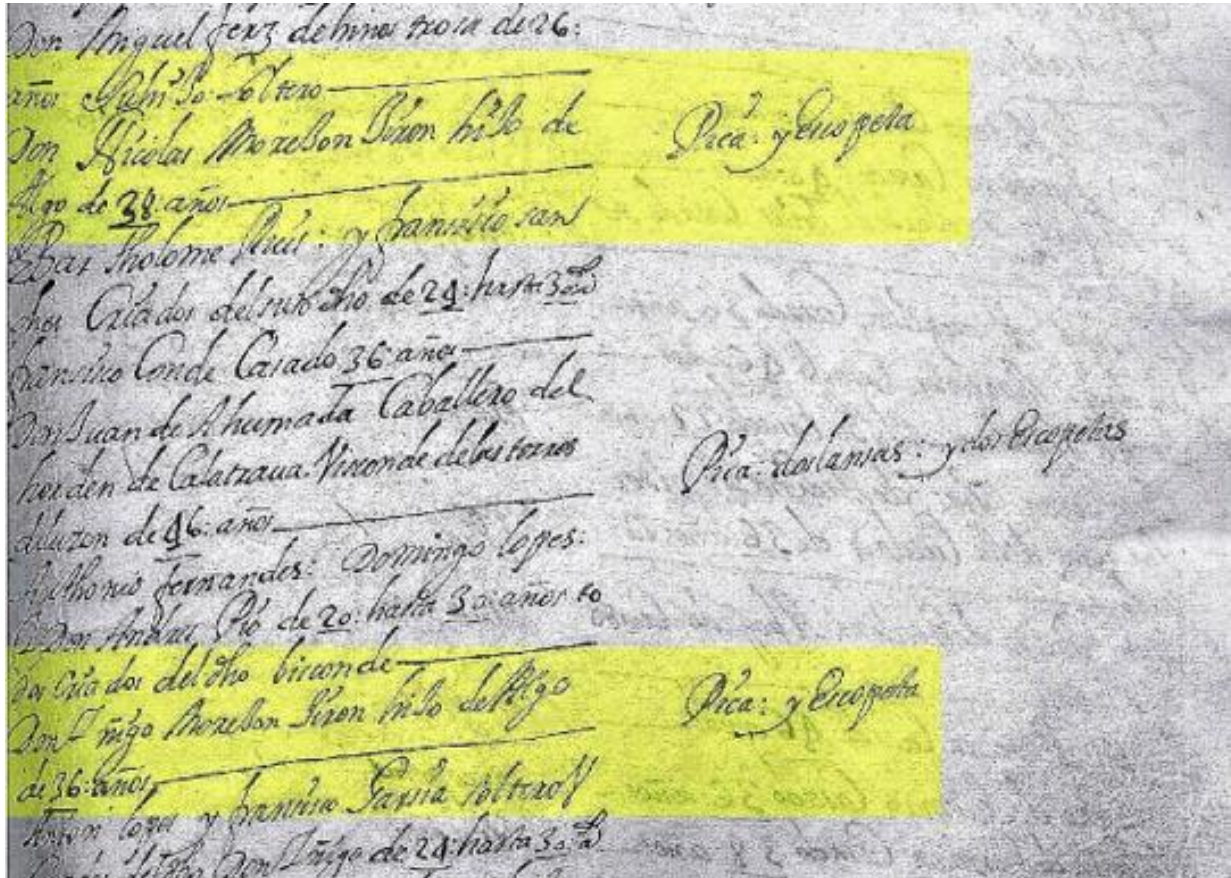 Don Miguel ferz de hinestrosa de 26:
años soltero
Don Nicolas Morejon Jiron hijo de
Algo de 38: años
Pica: y Escopeta
Bartholome Ruis: y francisco san
ches Criados del suso dho. de 24: hasta 30 as
francisco Conde Casado 36 años
Don Juan de Ahumada Caballero del
horden de Calatraua. Visconde de las torres
de luzon de 46: años
Pica: dos lansas: y dos Escopetas
Anthonio fernandes: Domingo lopes:
Don Andres Pio de 20: hasta 30: años to
dos Criados del dho bisconde
Don Iñigo Morejon Jiron hijo de Algo
de 36: años
Pica: y Escopeta
Anton lopes y francisco Garsia solteros
del dho Don Iñigo de 24: hasta 30 as